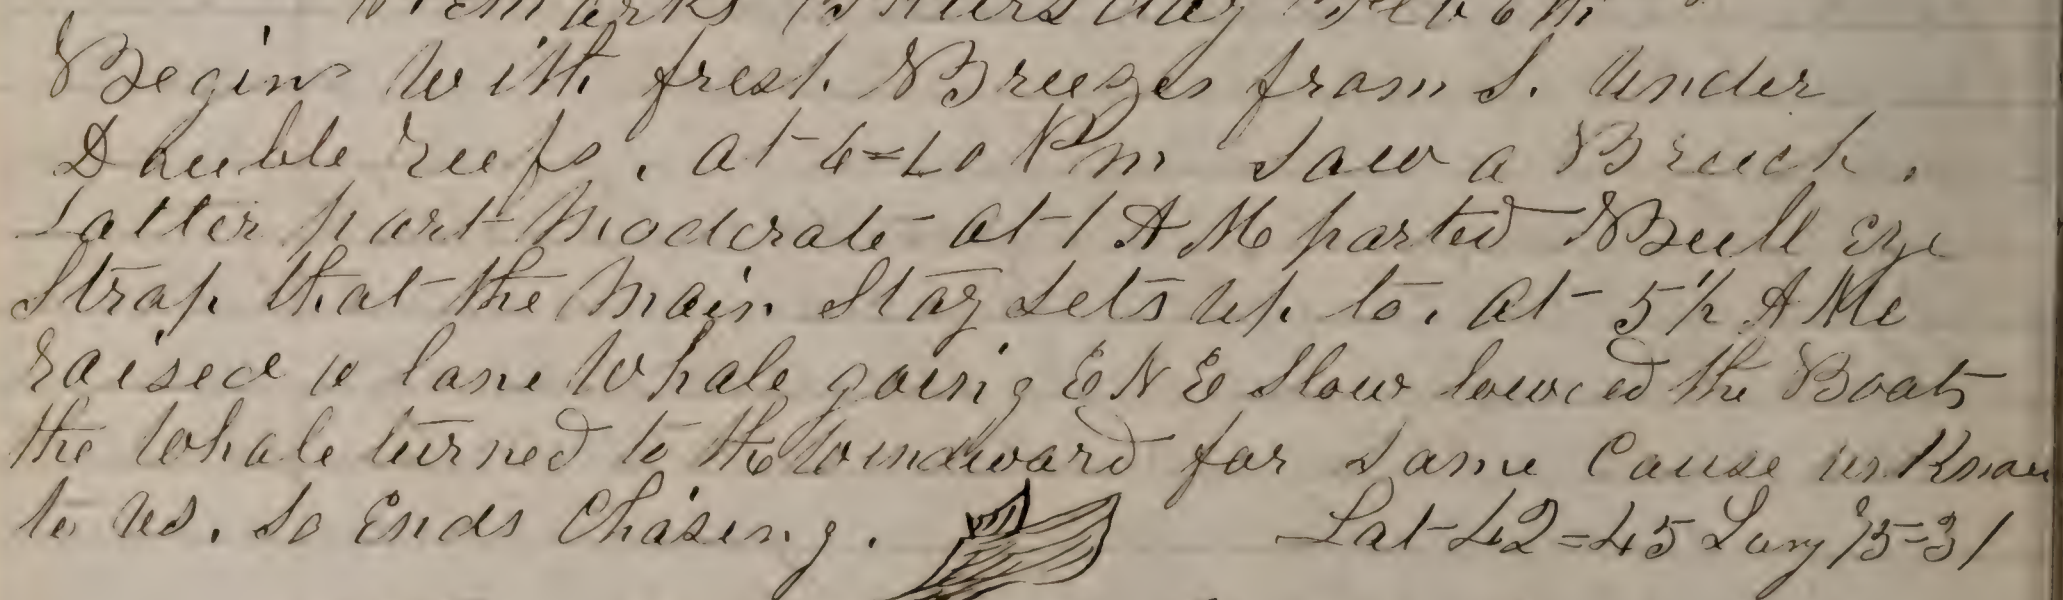 Remarks Thursday Feb 6th
Begins with fresh Breezes from S. under
Double reefs. at 6=40 Pm saw a Breach.
Latter part moderate at 1 A M parted Bull Eye
Strap that the Main Stay sets up to. at 5 1/2 A M
raised a lone Whale going E N E Slow lowered the Boats
the Whale turned to the windward for some Cause unknown
to us. So Ends Chasing.
Lat 42=45 Long 75=31